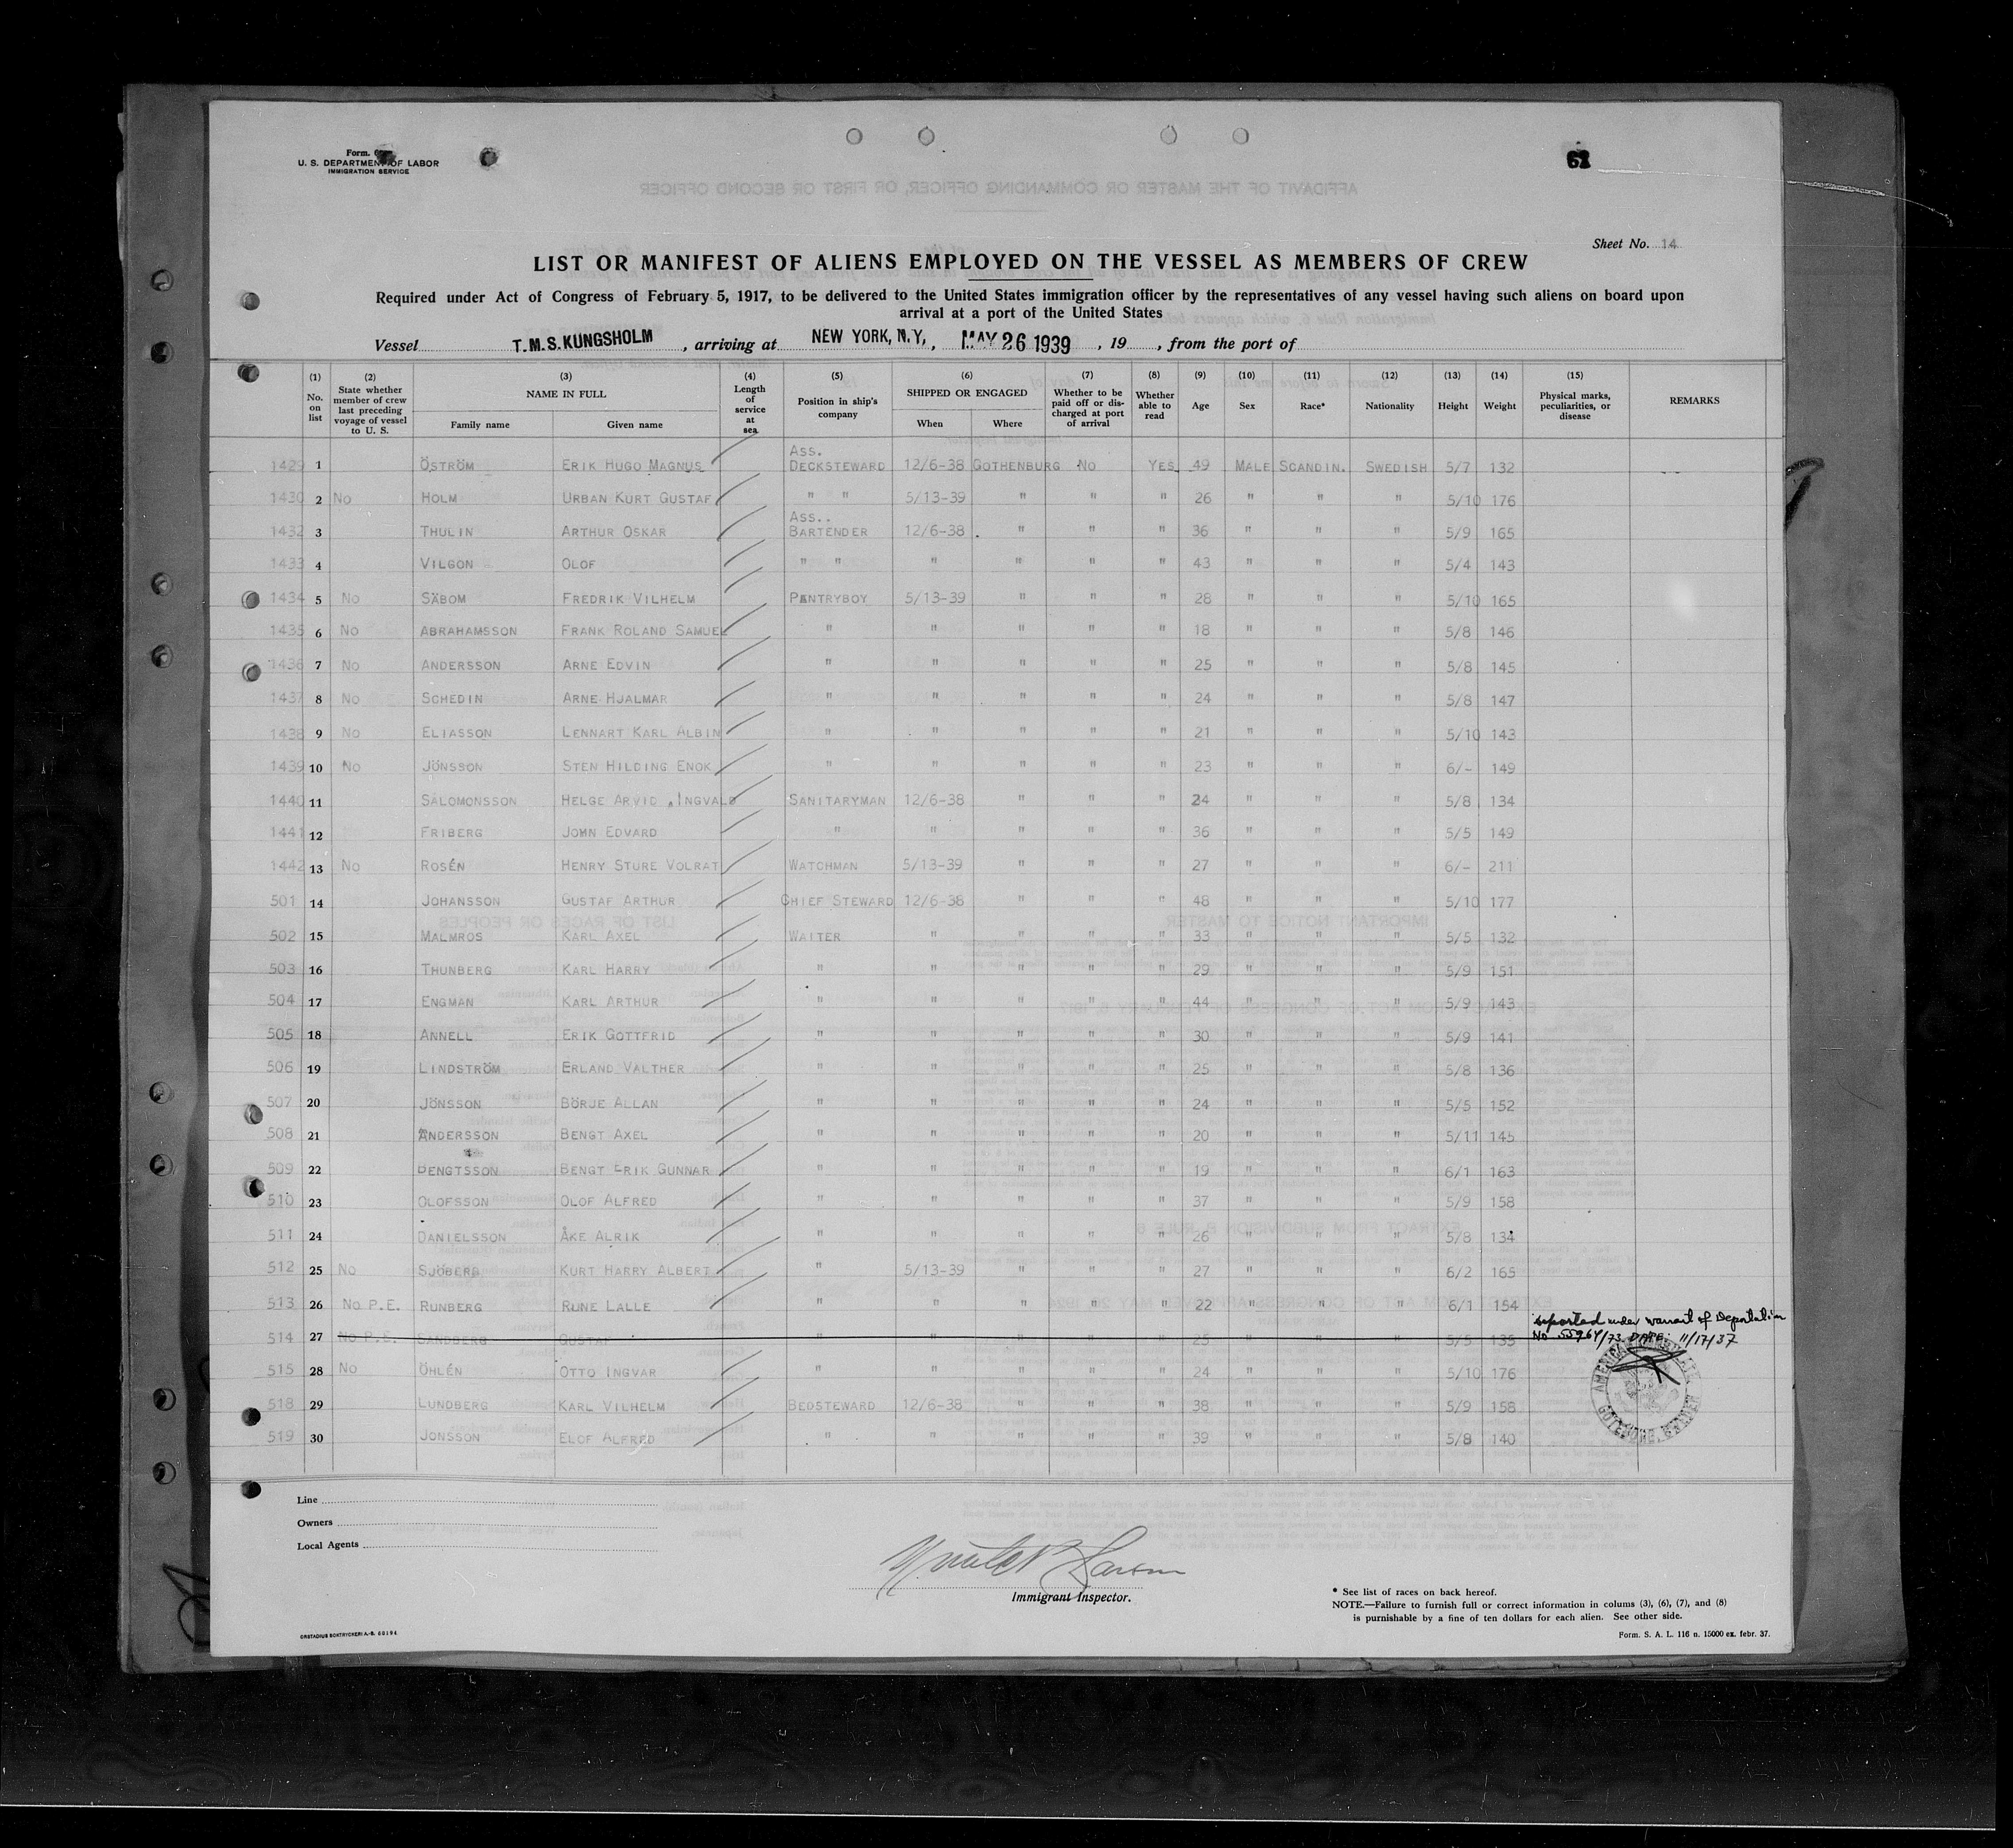 Form.
U. S. DEPARTMENT OF LABOR
IMMIGRATION SERVICE
Sheet No. 14
LIST OR MANIFEST OF ALIENS EMPLOYED ON THE VESSEL AS MEMBERS OF CREW
Required under Act of Congress of February 5, 1917, to be delivered to the United States immigration officer by the representatives of any vessel having such aliens on board upon
arrival at a port of the United States
Vessel T.M.S.KUNGSHOLM, arriving at NEW YORK, N.Y., MAY 26 1939, 19, from the port of
(1) No. on list (2) State whether member of crew last preceding voyage of vessel to U. S. (3) NAME IN FULL Family name Given name (4) Length of service at sea (5) Position in ship's company (6) SHIPPED OR ENGAGED When Where (7) Whether to be paid off or discharged at port of arrival (8) Whether able to read (9) Age (10) Sex (11) Race* (12) Nationality (13) Height (14) Weight (15) Physical marks, peculiarities, or disease REMARKS
1429 1 ÖSTRÖM ERIK HUGO MAGNUS ASS. DECKSTEWARD 12/6-38 GOTHENBURG NO YES 49 MALE SCANDIN. SWEDISH 5/7 132
1430 2 NO HOLM URBAN KURT GUSTAF " " 5/13-39 " " " 26 " " " 5/10 176
1432 3 THULIN ARTHUR OSKAR ASS.. BARTENDER 12/6-38 " " " 36 " " " 5/9 165
1433 4 VILGON OLOF " " " " " " 43 " " " 5/4 143
1434 5 NO SÄBOM FREDRIK VILHELM PANTRYBOY 5/13-39 " " " 28 " " " 5/10 165
1435 6 NO ABRAHAMSSON FRANK ROLAND SAMUEL " " " " " 18 " " " 5/8 146
1436 7 NO ANDERSSON ARNE EDVIN " " " " " 25 " " " 5/8 145
1437 8 NO SCHEDIN ARNE HJALMAR " " " " " 24 " " " 5/8 147
1438 9 NO ELIASSON LENNART KARL ALBIN " " " " " 21 " " " 5/10 143
1439 10 NO JÖNSSON STEN HILDING ENOK " " " " " 23 " " " 6/- 149
1440 11 SALOMONSSON HELGE ARVID INGVALD SANITARYMAN 12/6-38 " " " 24 " " " 5/8 134
1441 12 FRIBERG JOHN EDVARD " " " " " 36 " " " 5/5 149
1442 13 NO ROSÉN HENRY STURE VOLRAT WATCHMAN 5/13-39 " " " 27 " " " 6/- 211
501 14 JOHANSSON GUSTAF ARTHUR CHIEF STEWARD 12/6-38 " " " 48 " " " 5/10 177
502 15 MALMROS KARL AXEL WAITER " " " " 33 " " " 5/5 132
503 16 THUNBERG KARL HARRY " " " " " 29 " " " 5/9 151
504 17 ENGMAN KARL ARTHUR " " " " " 44 " " " 5/9 143
505 18 ANNELL ERIK GOTTFRID " " " " " 30 " " " 5/9 141
506 19 LINDSTRÖM ERLAND VALTHER " " " " " 25 " " " 5/8 136
507 20 JÖNSSON BÖRJE ALLAN " " " " " 24 " " " 5/5 152
508 21 ANDERSSON BENGT AXEL " " " " " 20 " " " 5/11 145
509 22 BENGTSSON BENGT ERIK GUNNAR " " " " " 19 " " " 6/1 163
510 23 OLOFSSON OLOF ALFRED " " " " " 37 " " " 5/9 158
511 24 DANIELSSON ÅKE ALRIK " " " " " 26 " " " 5/8 134
512 25 NO SJÖBERG KURT HARRY ALBERT " 5/13-39 " " " 27 " " " 6/2 165
513 26 NO P.E. RUNBERG RUNE LALLE " " " " " 22 " " " 6/1 154
deported under warrant of Deportation
514 27 NO P.E. SANDBERG GUSTAF 25 5/5 135 No 55964/73 DATE: 11/17/37
515 28 NO ÖHLÉN OTTO INGVAR " " " " " 24 " " " 5/10 176
518 29 LUNDBERG KARL VILHELM BEDSTEWARD 12/6-38 " " " 38 " " " 5/9 158
519 30 JONSSON ELOF ALFRED " " " " " 39 " " " 5/8 140
Line
Owners
Local Agents
Immigrant Inspector.
* See list of races on back hereof.
NOTE.—Failure to furnish full or correct information in colums (3), (6), (7), and (8)
is punishable by a fine of ten dollars for each alien. See other side.
Form. S. A. L. 116 n. 15000 ex. febr. 37.